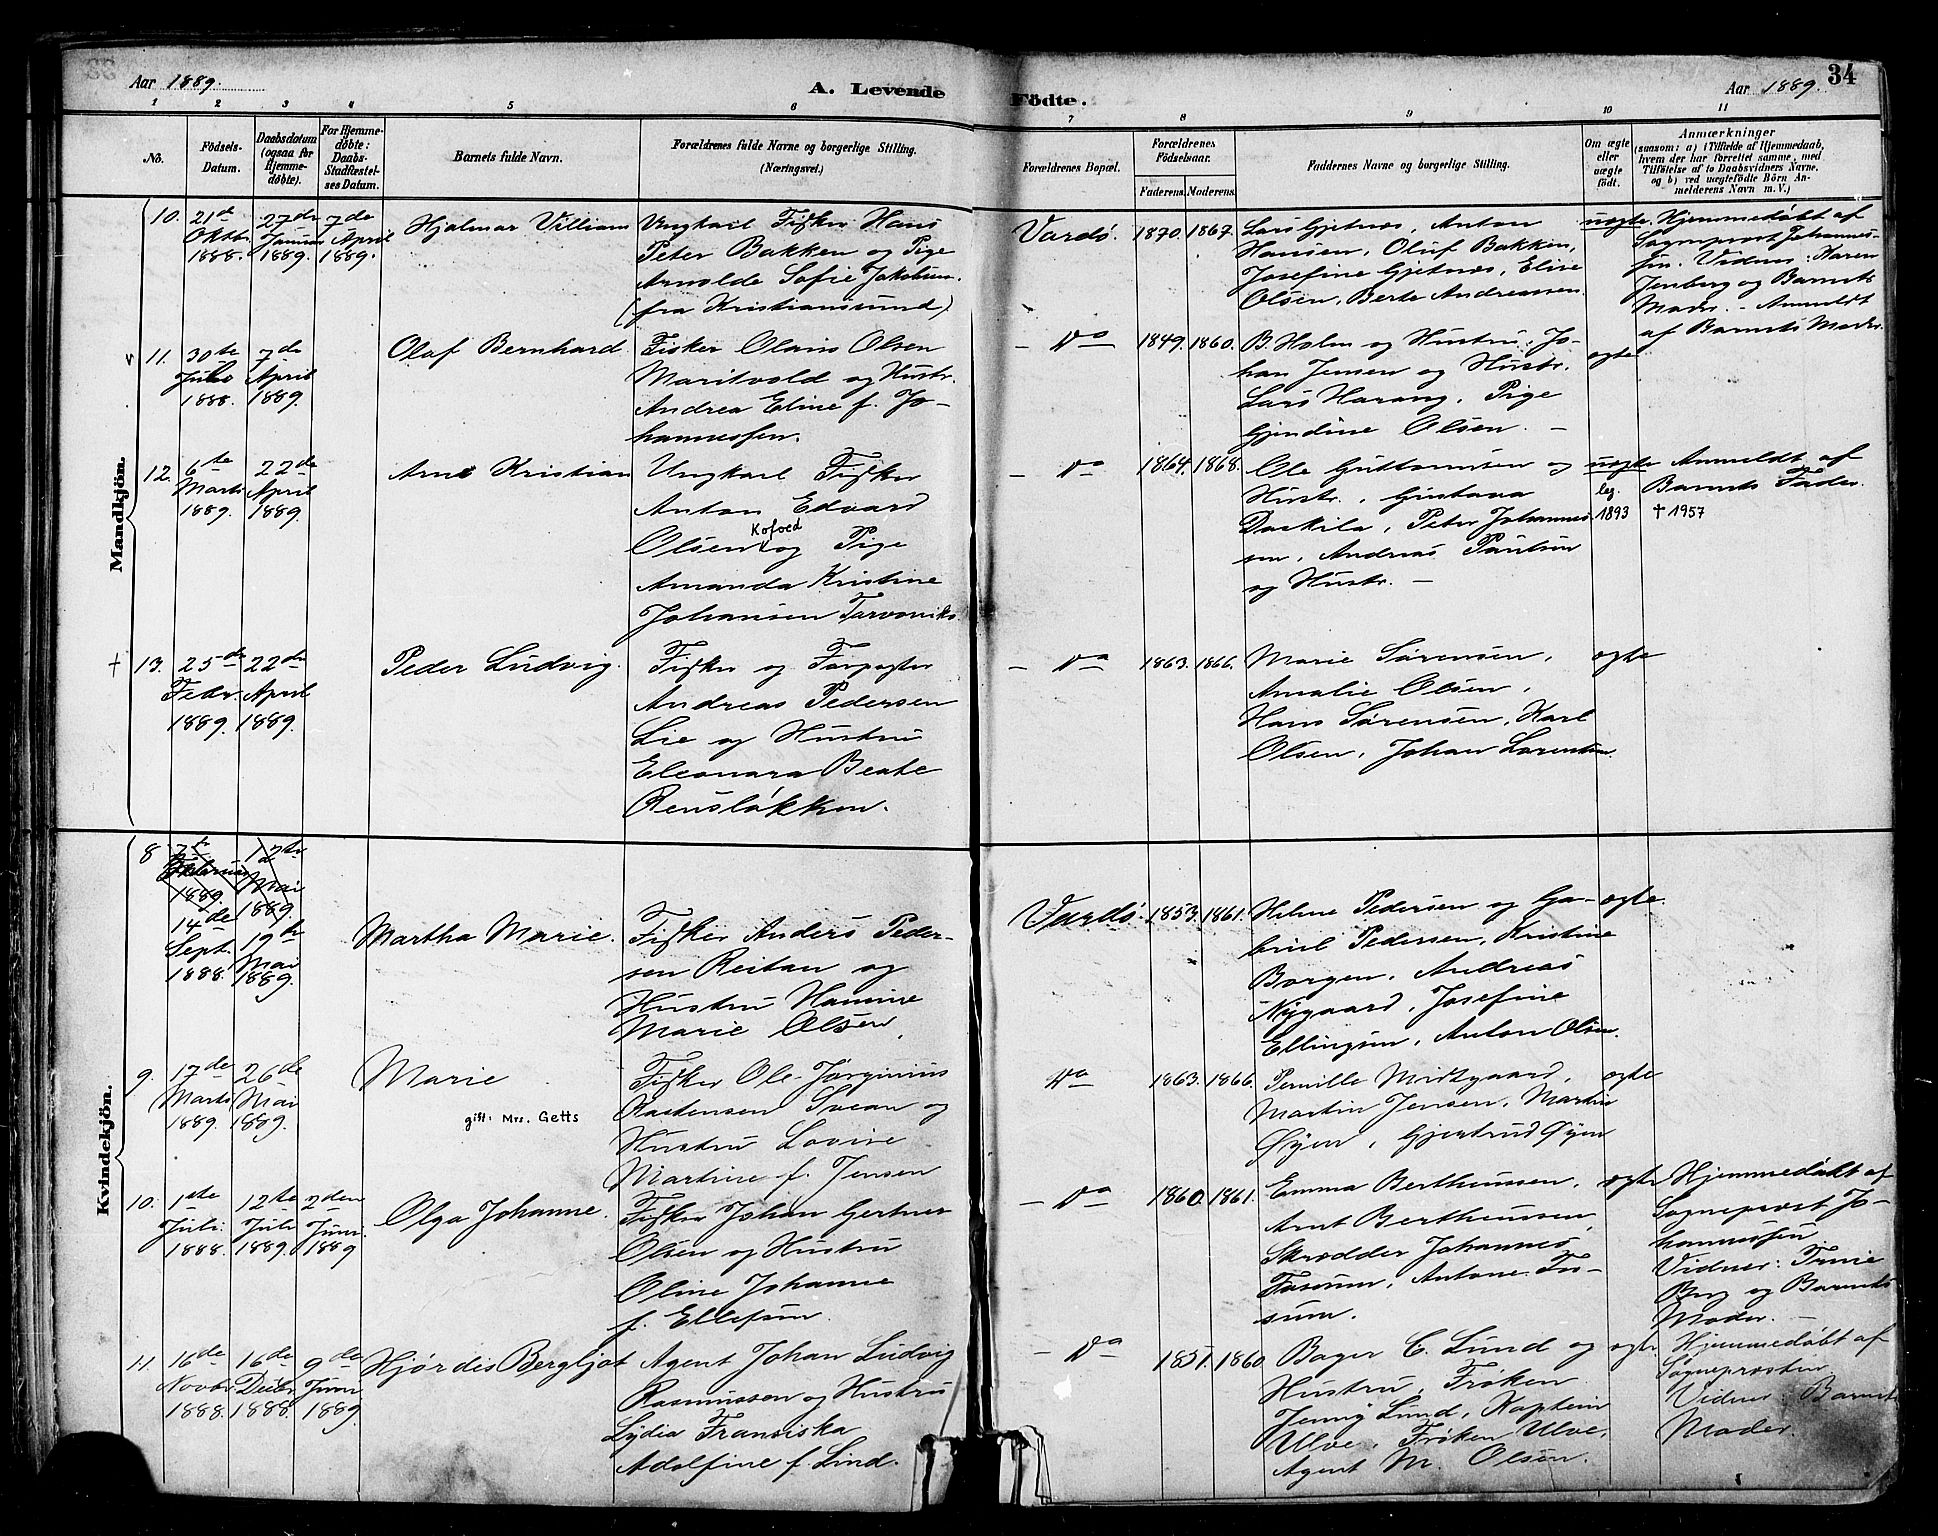 Aar 1889.
A. Levende
Födte.
Aar 1889.
34
1 2 3 4 5 6 7 8 9 10 11
No.
Födsels-
Datum.
Daabsdatum
(ogsaa for
Hjemme-
døbte).
For Hjemme-
døbte:
Daabs-
Stadfæstel-
ses Datum.
Barnets fulde Navn.
Forældrenes fulde Navne og borgerlige Stilling.
(Næringsvei.)
Forældrenes Bopæl.
Forældrenes
Födselsaar.
Faderens. Moderens.
Faddernes Navne og borgerlige Stilling.
Om ægte
eller
uægte
født.
Anmærkninger
(saasom: a) i Tilfælde af Hjemmedaab,
hvem der har forrettet samme, med
Tilföielse af to Daabsvidners Navne,
og b) ved uægtefödte Börn An-
melderens Navn m. V.)
Mandkjön.
10.
21de
Oktbr.
1888.
27de
Januar
1889.
7de
April
1889.
Hjalmar Villiam
Ungkarl Fisker Hans
Peter Bakken og Pige
Arnolde Sofie Jakobsen
(fra Kristiansund)
Vardø.
1870. 1867.
Lars Gjetnæs, Anton
Hansen, Oluf Bakken,
Josefine Gjetnæs, Elise
Olsen, Berte Andreassen
uægte
Hjemmedøbt af
Sogneprost Johannes-
sen. Vidner: Karen
Jenberg og Barnets
Moder. - Anmeldt
af Barnets Moder.
v 11.
30te
Juli
1888.
7de
April
1889.
Olaf Bernhard
Fisker Olaus Olsen
Maritvold og Hustr.
Andrea Eline f. Jo-
hannessen.
- Do -
1849. 1860.
B. Holm og Hustru, Jo-
han Jensen og Hustr.
Lars Harang, Pige
Gjendine Olsen. -
ægte
12.
6te
Marts
1889.
22de
April
1889.
Arne Kristian
Ungkarl Fisker
Anton Edvard
Olsen Kofoed og Pige
Amanda Kristine
Johansen Tarvoniks
- Do -
1864. 1868.
Ole Guttormsen og
Hustr., Gustava
Daskila, Peter Johannes-
sen, Andreas Paulsen
og Hustr. -
uægte
leg.
1893
Anmeldt af
Barnets Fader.
† 1957
† 13.
25de
Febr.
1889.
22de
April
1889.
Peder Ludvig.
Fisker og Forpagter
Andreas Pedersen
Lie og Hustru
Eleonara Beate
Rensløkken.
- Do -
1863. 1866.
Marie Sørensen,
Amalie Olsen,
Hans Sørensen, Karl
Olsen, Johan Lorentsen
ægte
Kvindekjön.
8
1889.
14de
Sept.
1888.
12te
Mai
1889.
19de
Mai
1889.
Martha Marie.
Fisker Anders Peder-
sen Reitan og
Hustru Hansine
Marie Olsen.
Vardø.
1853. 1861.
Helene Pedersen og Ga-
briel Pedersen, Kristine
Borgen, Andreas
Nygaard, Josefine
Ellingsen, Anton Olsen
ægte.
9.
17de
Marts
1889.
26de
Mai
1889.
Marie
gift: Mrs. Getts
Fisker Ole Jørginius
Rastensen Svean og
Hustru Lovise
Martine f. Jensen
Do
1863. 1866.
Pernille Midtgaard,
Martin Jensen, Martin
Øyen, Gjertrud Øyen
ægte
10.
1ste
Juli
1888.
12te
Juli
1889.
2den
Juni
1889
Olga Johanne.
Fisker Johan Gertner
Olsen og Hustru
Oline Johanne
f. Ellefsen.
- Do
1860. 1861.
Emma Bertheussen,
Arnt Bertheussen,
Skrædder Johannes
Fossum, Antone Fos-
sum.
ægte
Hjemmedøbt af
Sogneprost Jo-
hannessen
Vidner: Trine
Berg og Barnets
Moder. -
11.
16de
Novbr.
1888.
16de
Decbr.
1888.
9de
Juni
1889
Hjørdis Bergljot
Agent Johan Ludvig
Rasmussen og Hustru
Lydia Franciska
Adolfine f. Lind.
- Do
1851. 1860
Bager C. Lund og
Hustru, Frøken
Jenny Lund, Kaptein
Ulve, Frøken Ulve,
Agent M. Olsen.
ægte
Hjemmedøbt af
Sogneprosten
Vidner: Barnets
Moder.